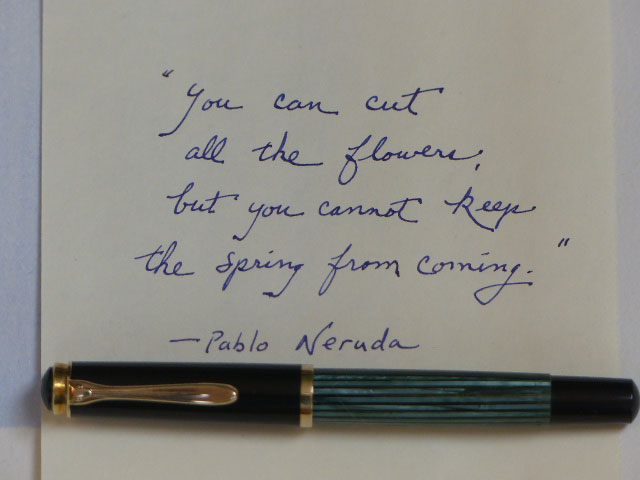 "You can cut
all the flowers,
but you cannot keep
the spring from coming."
—Pablo Neruda